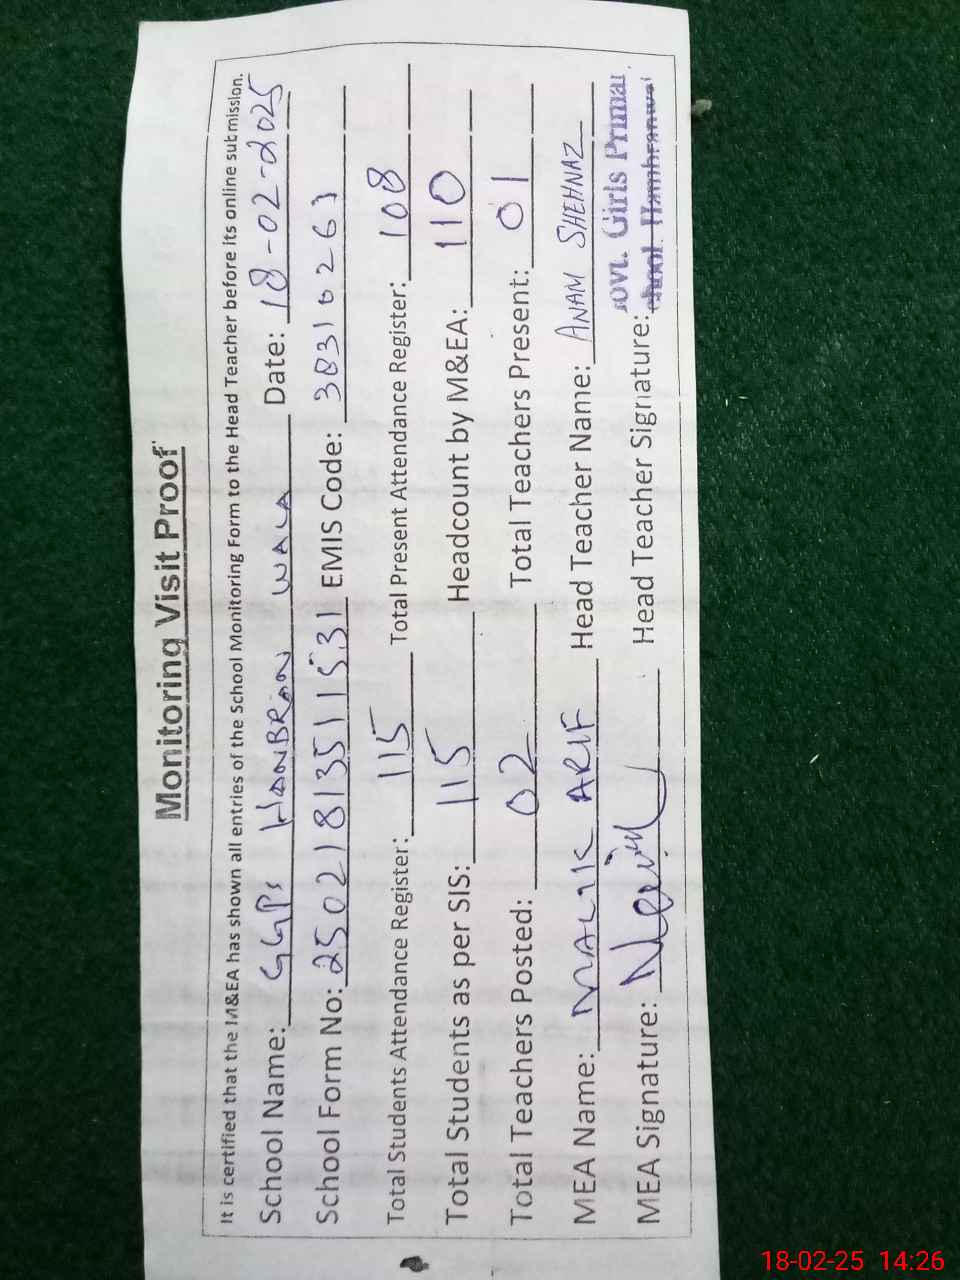 Monitoring Visit Proof
It is certified that the M&EA has shown all entries of the School Monitoring Form to the Head Teacher before its online submission.
School Name: GGPS HANBRAN WALA Date: 18-02-2025
School Form No: 250218135111531 EMIS Code: 38310263
Total Students Attendance Register: 115 Total Present Attendance Register: 108
Total Students as per SIS: 115 Headcount by M&EA: 110
Total Teachers Posted: 02 Total Teachers Present: 01
MEA Name: MALIK ARIF Head Teacher Name: ANAM SHEHNAZ
MEA Signature: Head Teacher Signature:
ovt. Girls Primar
chool
18-02-25 14:26